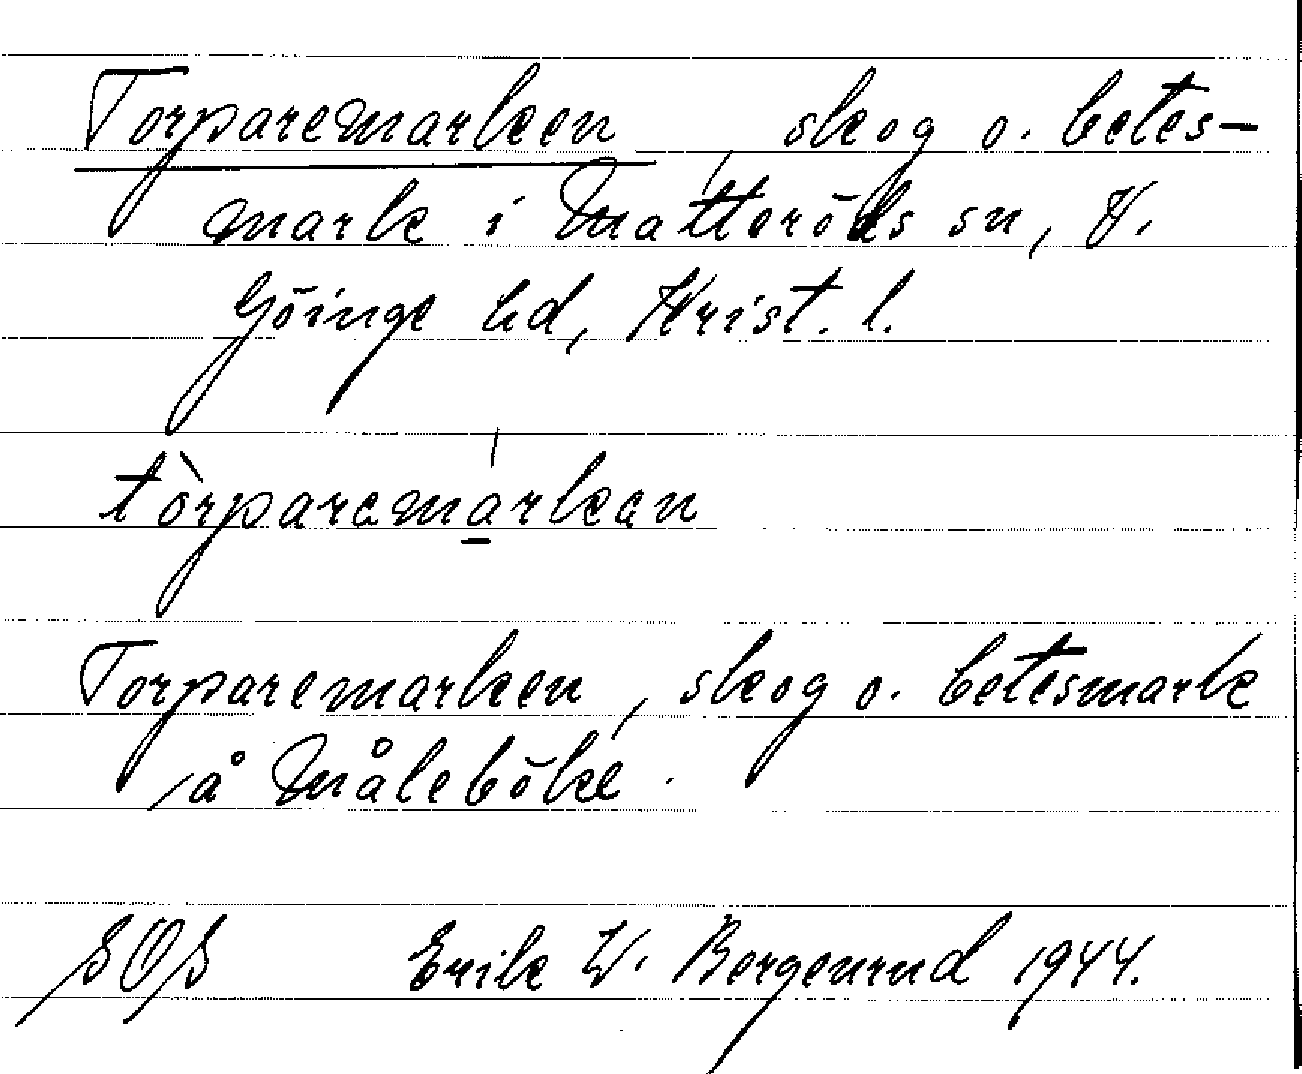 Torparemarken, skog o. betes-
mark i Matteröds sn, V.
Göinge hd, Krist. l.
tòrparemárkən
Torparemarken, skog o. betesmark
å Måleböke.
SOS Erik W. Bergenrud 1944.